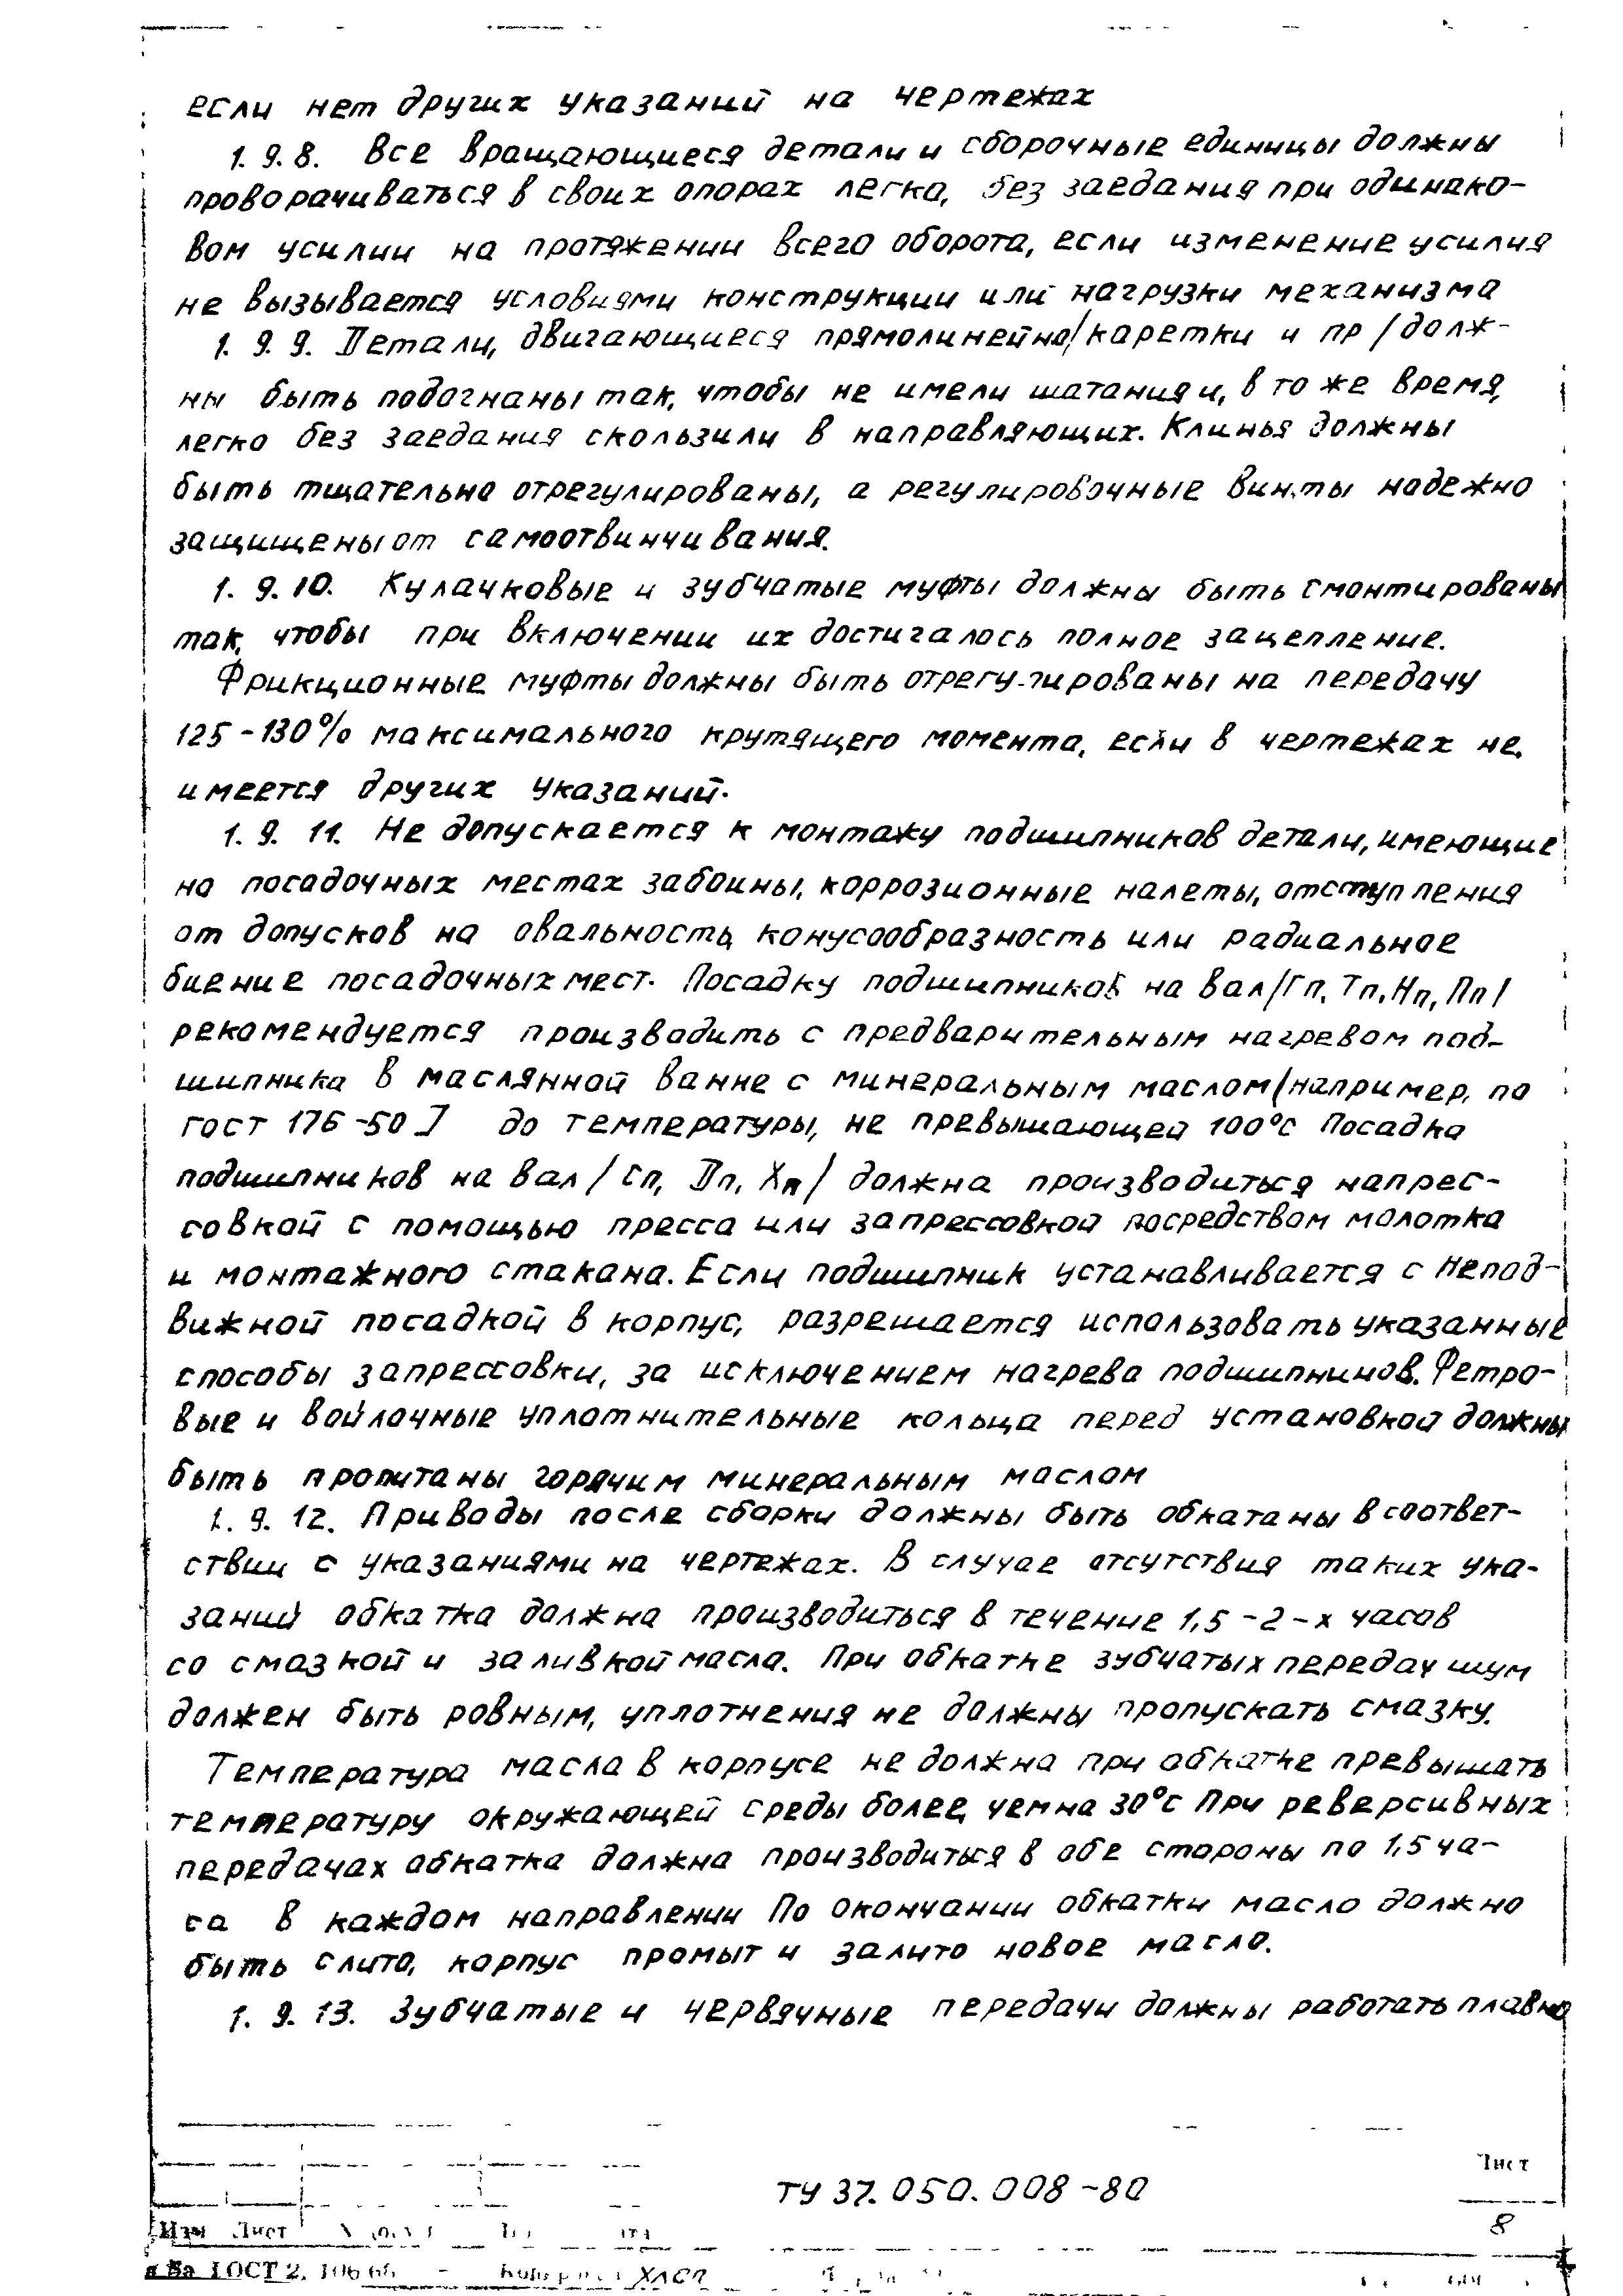 если нет других указаний на чертежах
1.9.8. Все вращающиеся детали и сборочные единицы должны
проворачиваться в своих опорах легко, без заедания при одинако-
вом усилии на протяжении всего оборота, если изменение усилия
не вызывается условиями конструкции или нагрузки механизма
1.9.9. Детали, двигающиеся прямолинейно /каретки и пр/ долж-
ны быть подогнаны так, чтобы не имели шатания и, в то же время,
легко без заедания скользили в направляющих. Клинья должны
быть тщательно отрегулированы, а регулировочные винты надежно
защищены от самоотвинчивания.
1.9.10. Кулачковые и зубчатые муфты должны быть смонтированы
так, чтобы при включении их достигалось полное зацепление.
Фрикционные муфты должны быть отрегулированы на передачу
125-130% максимального крутящего момента, если в чертежах не
имеется других указаний.
1.9.11. Не допускается к монтажу подшипников детали, имеющие
на посадочных местах забоины, коррозионные налеты, отступления
от допусков на овальность, конусообразность или радиальное
биение посадочных мест. Посадку подшипников на вал /Гп, Тп, Нп, Пп/
рекомендуется производить с предварительным нагревом под-
шипника в маслянной ванне с минеральным маслом /например, по
ГОСТ 176-50] до температуры, не превышающей 100°С Посадка
подшипников на вал /Сп, Дп, Хп/ должна производиться напрес-
совкой с помощью пресса или запрессовкой посредством молотка
и монтажного стакана. Если подшипник устанавливается с непод-
вижной посадкой в корпус, разрешается использовать указанные
способы запрессовки, за исключением нагрева подшипников. Фетро-
вые и войлочные уплотнительные кольца перед установкой должны
быть пропитаны горячим минеральным маслом
1.9.12. Приводы после сборки должны быть обкатаны в соответ-
ствии с указаниями на чертежах. В случае отсутствия таких ука-
заний обкатка должна производиться в течение 1,5-2-х часов
со смазкой и заливкой масла. При обкатке зубчатых передач шум
должен быть ровным, уплотнения не должны пропускать смазку.
Температура масла в корпусе не должна при обкатке превышать
температуру окружающей среды более, чем на 30°С При реверсивных
передачах обкатка должна производиться в обе стороны по 1,5 ча-
са в каждом направлении По окончании обкатки масло должно
быть слито, корпус промыт и залито новое масло.
1.9.13. Зубчатые и червячные передачи должны работать плавно
ТУ 37.050.008-80
Лист
8
Изм Лист
ГОСТ 2.106-68